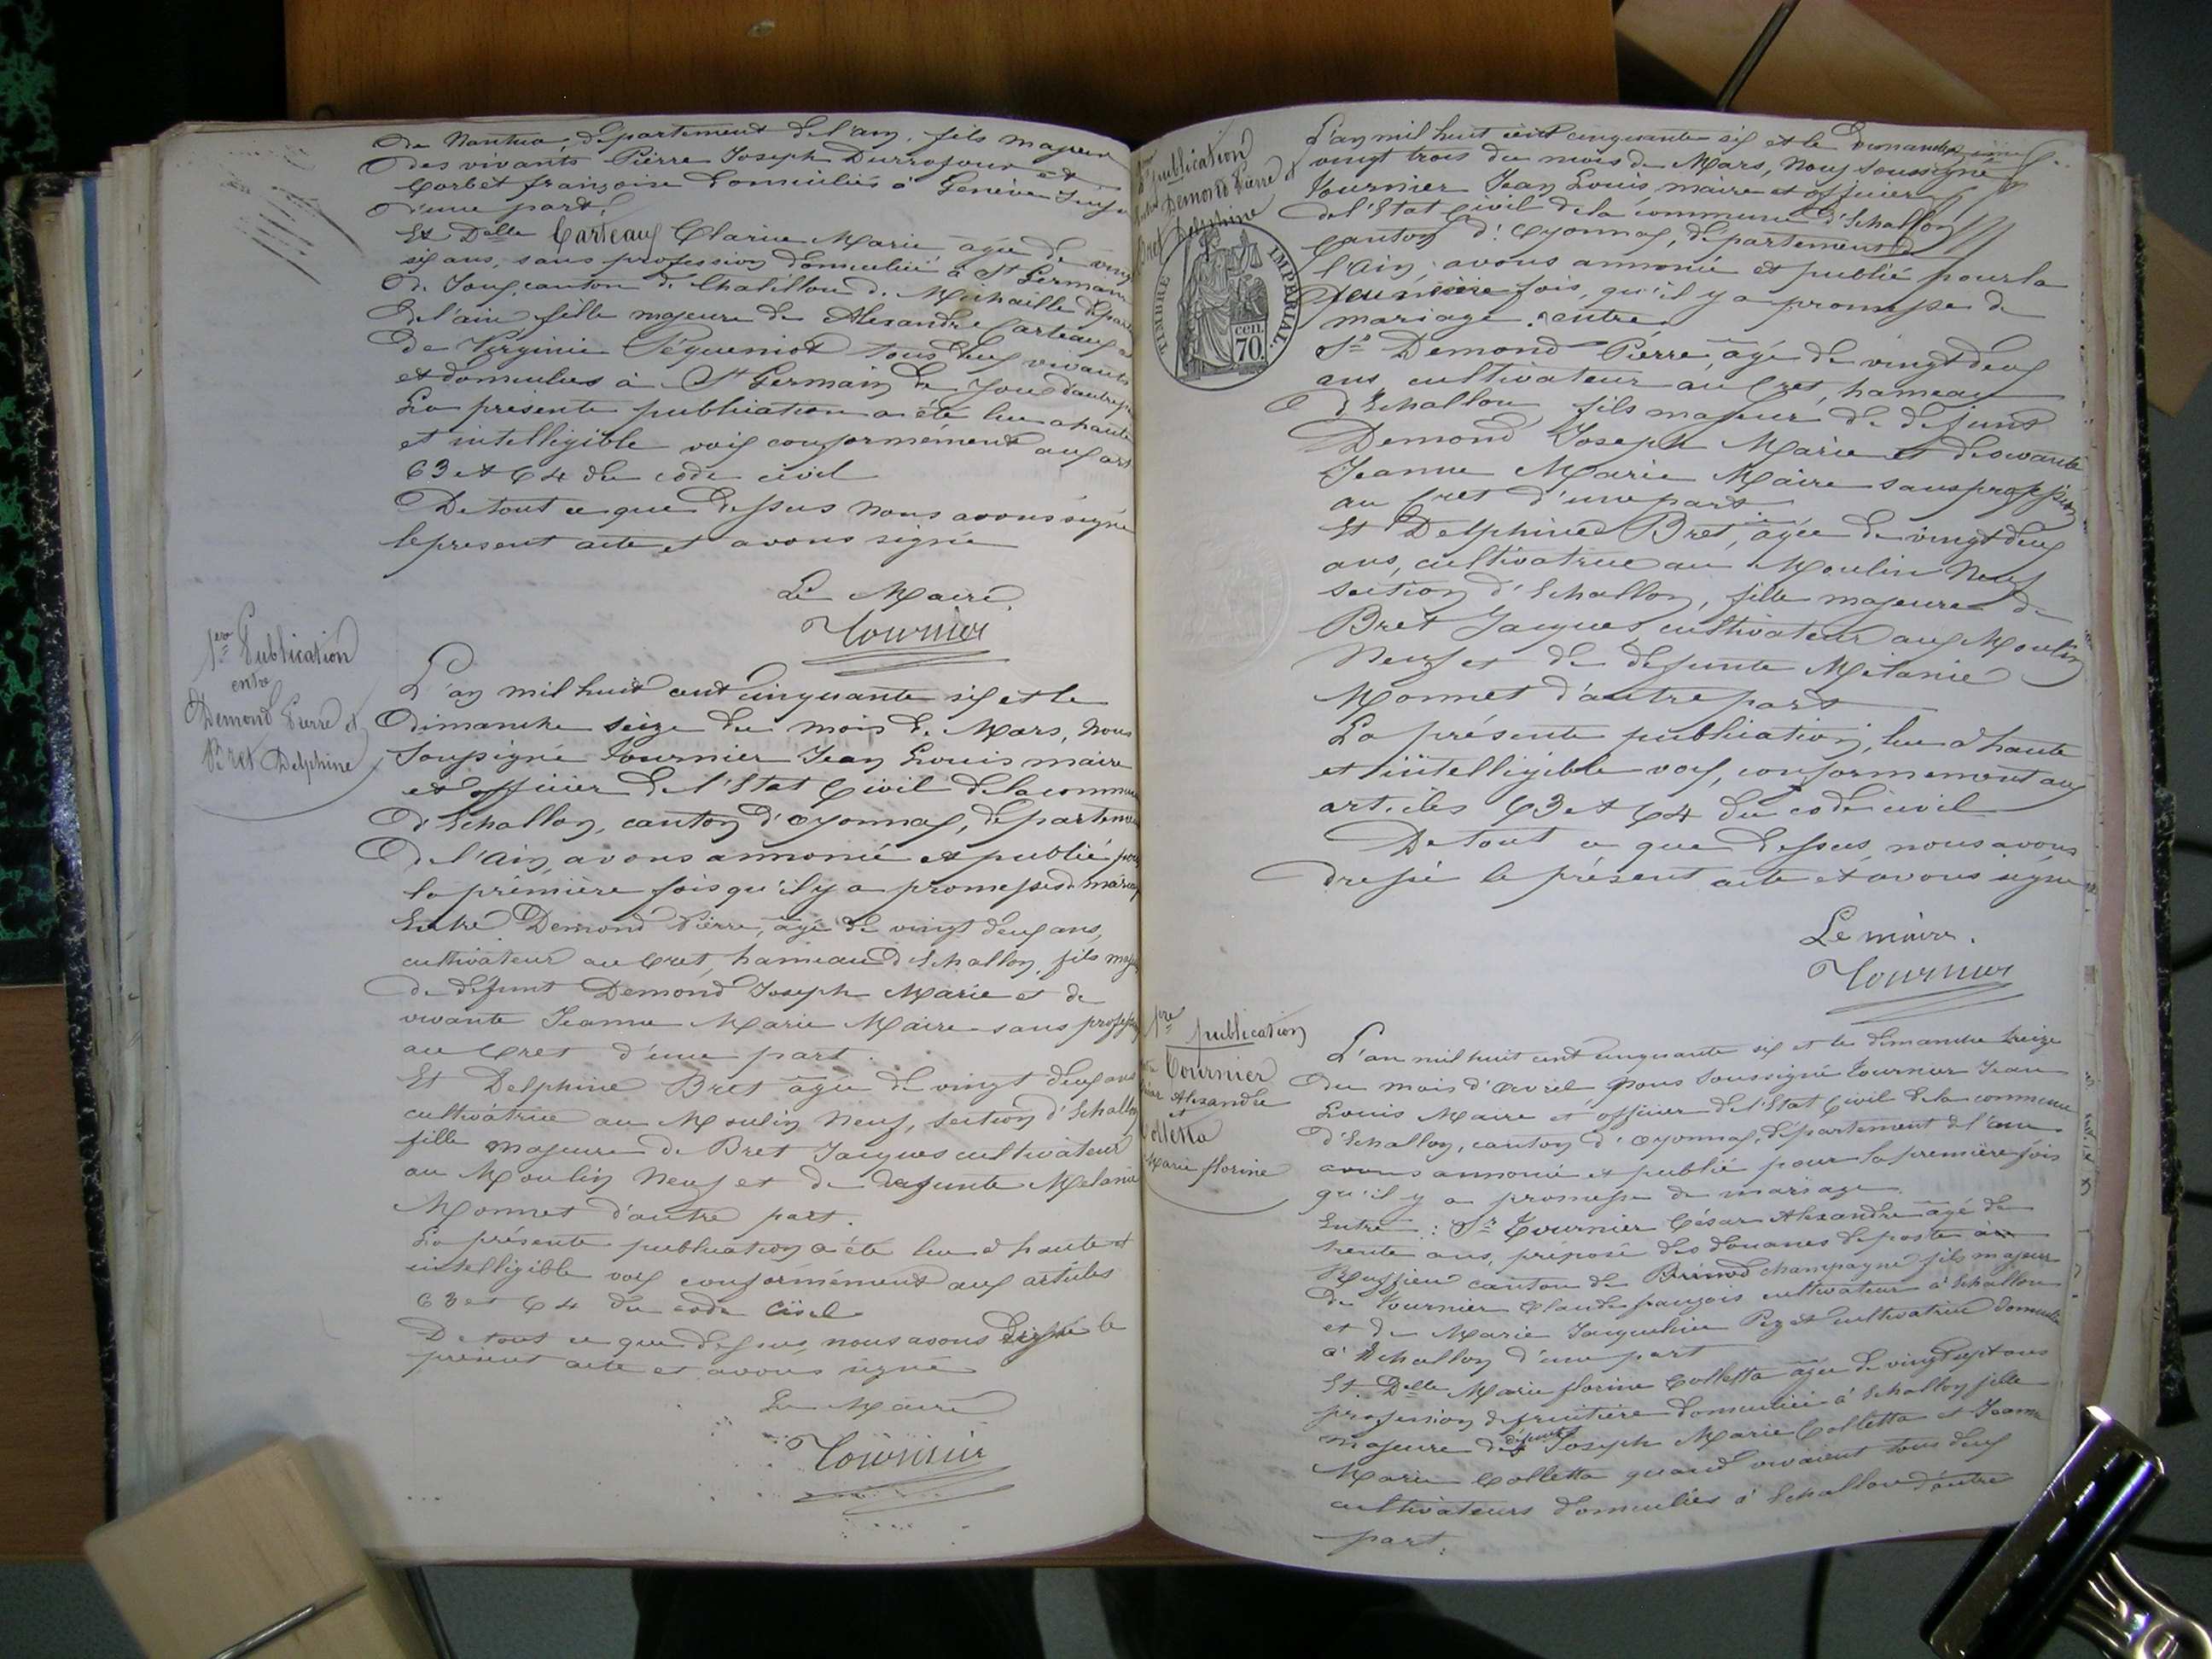 de Nantua, département de l'ain, fils majeur
des vivants Pierre Joseph Durrafour et
Corbet françoise domiciliés à Genève
d'une part.
Et Delle Carteaux Clarice Marie agée de vingt
six ans, sans profession domiciliée à St Germain
de Joux, canton de Chatillon de Michaille
de l'ain, fille majeure de Alexandre Carteaux
de Virginie Péqueniot tous deux vivants
et domiciliés à St Germain de Joux d'autre part
La présente publication a été lue a haute
et intelligible voix conformément aux art
63 et 64 du code civil
De tout ce que dessus nous avons signé
le present acte et avons signé
Le Maire
Tournier
1ere Publication
entre
Demond Pierre et
Bret Delphine
L'an mil huit cent cinquante six et le
dimanche seize du mois de Mars, Nous
Soussigné Tournier Jean Louis maire
et officier de l'Etat Civil de la commune
d'Echallon, canton d'Oyonnax, département
de l'Ain, avons annoncé et publié pour
la première fois qu'il y a promesse de mariage
Entre Demond Pierre, âgé de vingt deux ans,
cultivateur au Cret, hameau d'Echallon, fils majeur
de défunt Demond Joseph Marie et de
vivante Jeanne Marie Maire sans profession
au Cret d'une part.
Et Delphine Bret âgée de vingt deux ans
cultivatrice au Moulin Neuf, section d'Echallon
fille majeure de Bret Jacques cultivateur
au Moulin Neuf et de defunte Melanie
Monnet d'autre part.
La présente publication a été lue à haute et
intelligible voix conformément aux articles
63 et 64 du code Civil
De tout ce que dessus, nous avons dressé le
présent acte et avons signé
Le Maire
Tournier
publication
Demond Pierre et
Bret Delphine
TIMBRE IMPERIAL
70 cen.
L'an mil huit cent cinquante six et le Dimanche
vingt trois du mois de Mars, Nous Soussigné
Tournier Jean Louis, maire et officier
de l'Etat Civil de la commune d'Echallon
canton d'Oyonnax, département de
l'Ain, avons annoncé et publié pour la
fois, qu'il y a promesse de
mariage entre
Sr Demond Pierre, âgé de vingt deux
ans, cultivateur au Cret, hameau
d'Echallon, fils majeur de défunt
Demond Joseph Marie et de vivante
Jeanne Marie Maire sans profession
au Cret d'une part
Et Delphine Bret, âgée de vingt deux
ans, cultivatrice au Moulin Neuf
section d'Echallon, fille majeure de
Bret Jacques cultivateur au Moulin
Neuf et de defunte Mélanie
Monnet d'autre part
La présente publication, lue à haute
et intelligible voix, conformément aux
articles 63 et 64 du code civil
De tout ce que dessus, nous avons
dressé le présent acte et avons signé
Le maire.
Tournier
1ere publication
Tournier
César Alexandre
et
Colletta
Marie florine
L'an mil huit cent cinquante six et le dimanche treize
du mois d'Avril, Nous Soussigné Tournier Jean
Louis Maire et officier de l'Etat Civil de la commune
d'Echallon, canton d'Oyonnax, département de l'ain
avons annoncé et publié pour la première fois
qu'il y a promesse de mariage
Entre : Sr Tournier César Alexandre âgé de
trente ans, préposé des douanes de poste à
Ruffieu canton de Brénod champagne fils majeur
de Tournier Claude françois cultivateur à Echallon
et de Marie Jacqueline Pezet cultivatrice domiciliée
à Echallon d'une part
Et Delle Marie florine Colletta âgée de vingt sept ans
profession de fruitière domiciliée à Echallon fille
majeure de défunts Joseph Marie Colletta et Jeanne
Marie Colletta quand vivaient tous deux
cultivateurs domiciliés à Echallon d'autre
part.